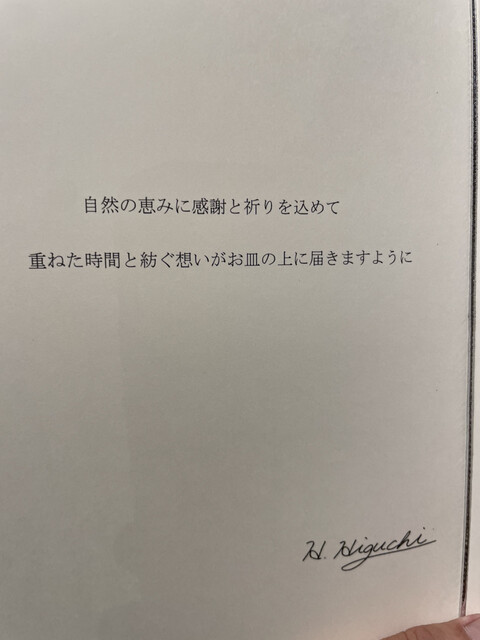 自然の恵みに感謝と祈りを込めて
重ねた時間と紡ぐ想いがお皿の上に届きますように
H. Higuchi